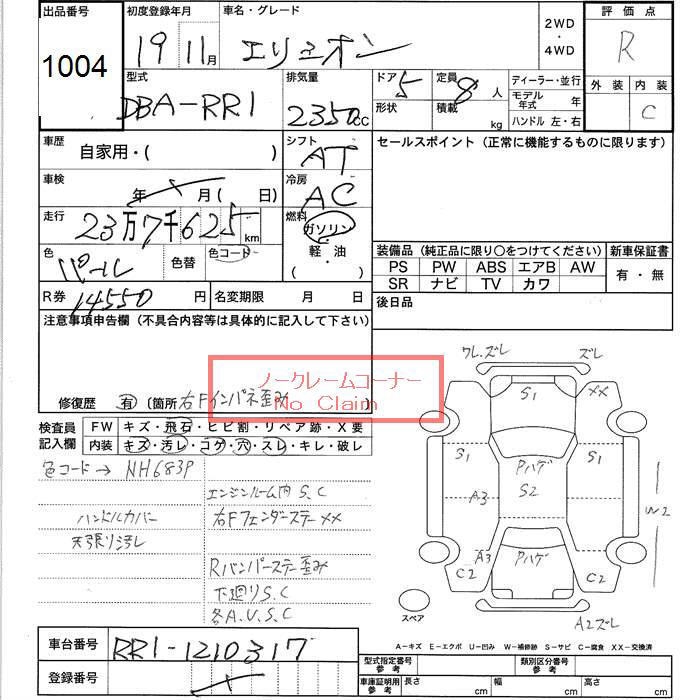 出品番号 初度登録年月 車名・グレード 2WD・4WD 評価点
1004 19 11月 エリシオン R
型式 排気量 ドア 5 定員 8人 ディーラー・並行 外装 内装
DBA-RR1 2350cc 形状 積載 kg モデル年式 年 C
ハンドル 左・右
車歴 自家用・( ) シフト AT セールスポイント (正常に機能するものに限ります)
車検 年 月( 日) 冷房 AC
走行 23万7千625km 燃料 ガソリン・軽油 ( )
色 パール 色替 色コード 装備品 (純正品に限り〇をつけてください) 新車保証書
PS PW ABS エアB AW 有・無
SR ナビ TV カワ
R券 14550円 名変期限 月 日 後日品
注意事項申告欄 (不具合内容等は具体的に記入して下さい)
ワレ.ズレ ズレ
ノークレームコーナー
No Claim
修復歴 有 〔箇所 右Fインパネ歪み )
S1 XX
検査員記入欄 FW キズ・飛石・ヒビ割・リペア跡・X要
内装 キズ・汚レ・コゲ・穴・スレ・キレ・破レ
S1 Pハゲ S1
色コード→NH683P
エンジンルーム内 S.C A3 S2 W2
ハンドルカバー 右Fフェンダーステー XX
天張り汚レ
Rバンパーステー歪み A3 Pハゲ
下廻りS.C C2 C2
各A.U.S.C
スペア A2ズレ
車台番号 RR1-1210317
A-キズ E-エクボ U-凹み W-補修跡 S-サビ C-腐食 XX-交換済
登録番号
型式指定番号 参考 類別区分番号 参考
車庫証明用 参考 長さ cm 幅 cm 高さ cm